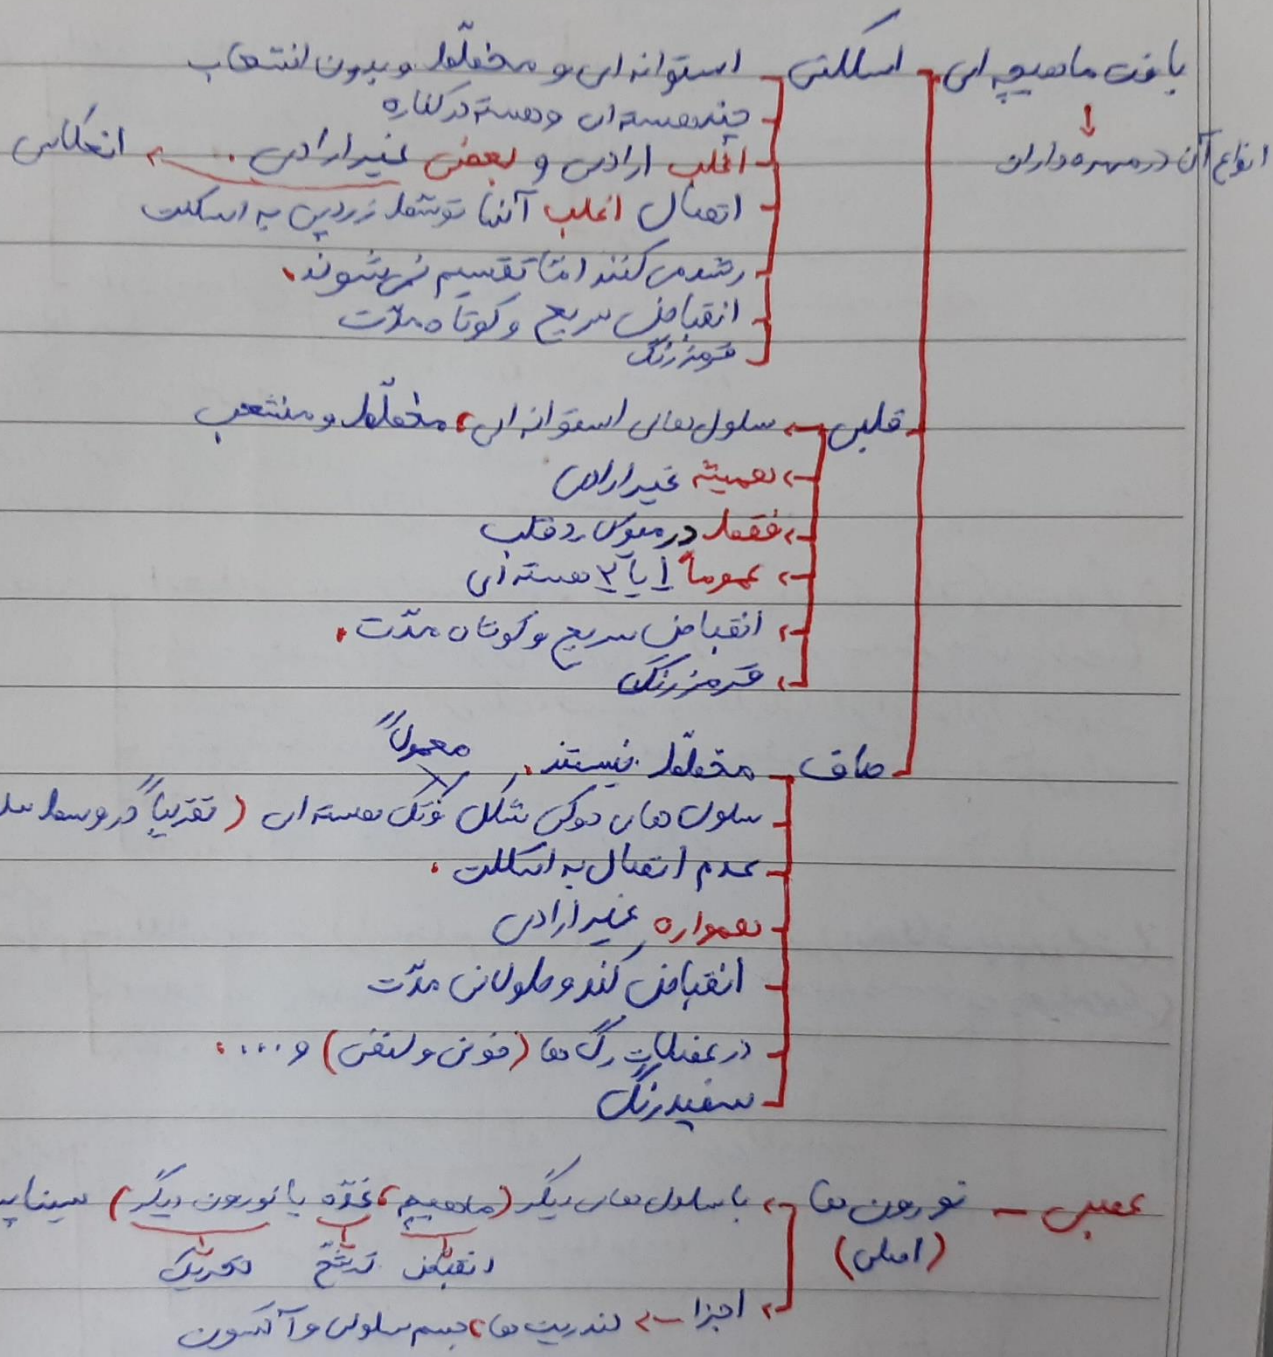 بافت ماهیچه ای
انواع آن در مهره داران
اسکلتی
استوانه ای و مخطّط و بدون انشعاب
چند هسته ای و هسته در کناره
اغلب ارادی و بعضی غیر ارادی . . . انعکاس
اتصال اغلب آنها توسط زردپی به اسکلت
رشد می کنند امّا تقسیم نمی شوند.
انقباض سریع و کوتاه مدّت
قرمز رنگ
قلبی
سلول های استوانه ای، مخطّط و منشعب
همیشه غیر ارادی
فقط در میوکارد قلب
عموماً 1 یا 2 هسته ای
انقباض سریع و کوتاه مدّت.
قرمز رنگ
صاف
مخطّط نیستند.
معمولاً
سلول های دوکی شکل و تک هسته ای (تقریباً در وسط
عدم اتصال به اسکلت.
همواره غیر ارادی
انقباض کند و طولانی مدّت
در عضلات رگ ها (خونی و لنفی) و ....
سفید رنگ
عصبی - نورون ها
(اصلی)
با سلول های دیگر (ماهیچه، غدّه یا نورون دیگر)
انقباض ترشّح تحریک
اجزا دندریت ها، جسم سلولی و آکسون